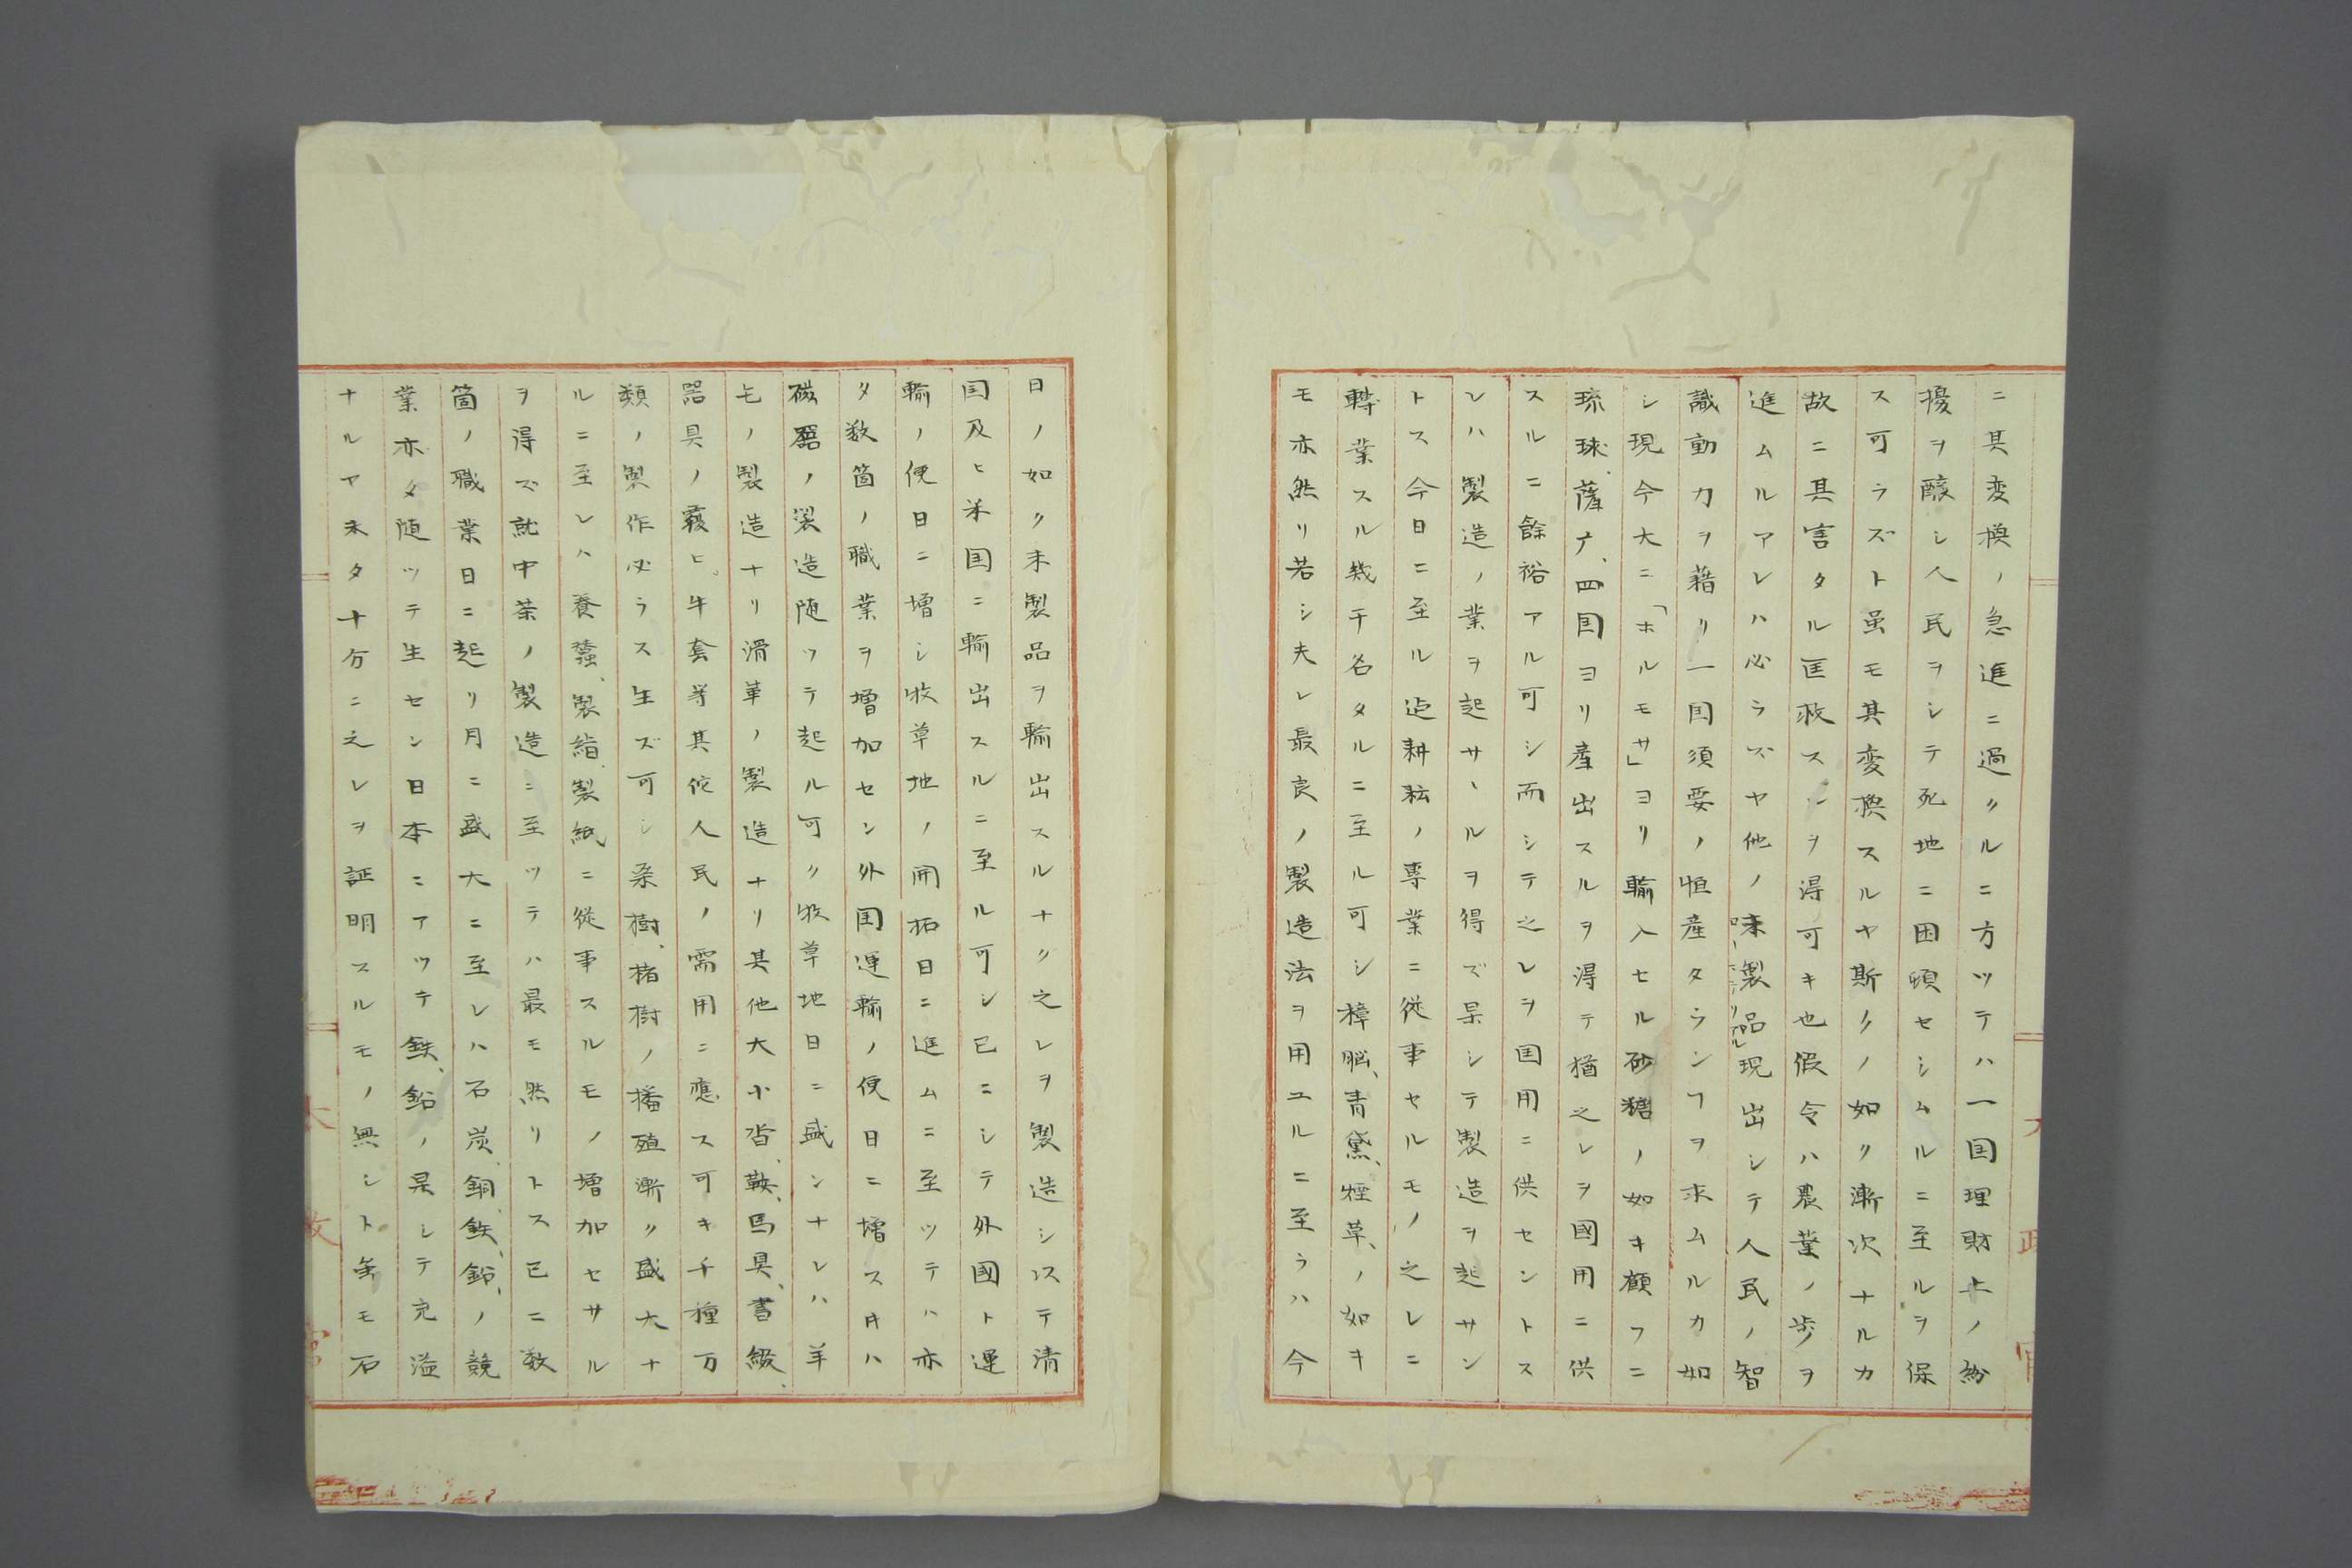 ニ其変換ノ急進ニ過クルニ方ツテハ一国理財上ノ紛
擾ヲ醸シ人民ヲシテ死地ニ困頓セシムルニ至ルヲ保
ス可ラズト虽モ其変換スルヤ斯クノ如ク漸次ナルカ
故ニ其害タル匡救スルヲ得可キ也假令ハ農業ノ歩ヲ
進ムルアレハ必ラズヤ他ノ未製品現出シテ人民ノ智
識動力ヲ藉リ一国須要ノ恒産タランヿヲ求ムルカ如
シ現今大ニ「ホルモサ」ヨリ輸入セル砂糖ノ如キ顧フニ
琉球、薩广、四国ヨリ産出スルヲ得テ猶之レヲ國用ニ供
スルニ餘裕アル可シ而シテ之レヲ国用ニ供セントス
レハ製造ノ業ヲ起サヽルヲ得ズ果シテ製造ヲ起サン
トス今日ニ至ル迠耕耘ノ専業ニ従事セルモノ之レニ
轉業スル幾千名タルニ至ル可シ樟脳、青黛、烟草、ノ如キ
モ亦然リ若シ夫レ最良ノ製造法ヲ用ユルニ至ラハ今
日ノ如ク未製品ヲ輸出スルナク之レヲ製造シ以テ清
国及ヒ米国ニ輸出スルニ至ル可シ已ニシテ外國ト運
輸ノ便日ニ増シ牧草地ノ開拓日ニ進ムニ至ツテハ亦
タ数箇ノ職業ヲ増加セン外国運輸ノ便日ニ増ス片ハ
磁器ノ製造随ツテ起ル可ク牧草地日ニ盛ンナレハ羊
毛ノ製造ナリ滑革ノ製造ナリ其他大小沓、鞍、馬具、書綴、
器具ノ覆ヒ。牛套等其佗人民ノ需用ニ應ス可キ千種万
類ノ製作必ラス生ズ可シ桑樹、楮樹ノ播殖漸ク盛大ナ
ルニ至レハ養蠶、製絹、製紙ニ從事スルモノ増加セサル
ヲ得ズ就中茶ノ製造ニ至ツテハ最モ然リトス已ニ数
箇ノ職業日ニ起リ月ニ盛大ニ至レハ石炭、銅、鉄、鉛、ノ競
業亦タ随ツテ生セン日本ニアツテ鉄、鉛ノ果シテ充溢
ナルヤ未タ十分ニ之レヲ証明スルモノ無シト𬼀モ石